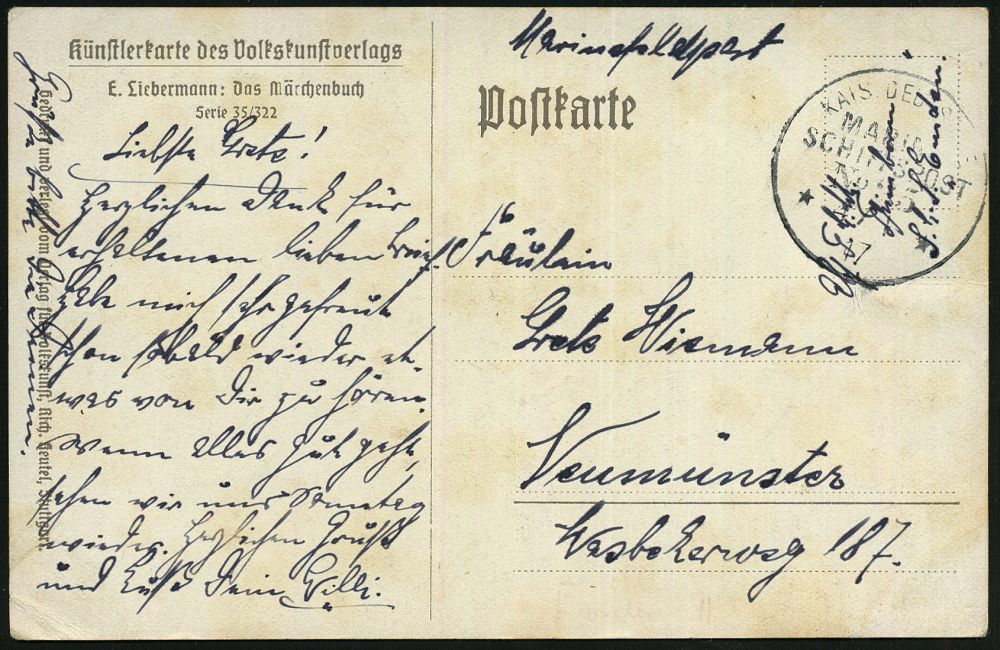 Künstlerkarte des Volkskunstverlags
E. Liebermann: Das Märchenbuch
Serie 35/322
Liebste Grete!
Herzlichen Dank für
erhaltenen lieben Brief.
Habe mich sehr gefreut
schon sobald wieder et-
was von Dir zu hören.
Wenn alles gut geht,
sehen wir uns Sonntag
wieder. Herzlichen Gruß
und Kuß Dein Willi.
und Verlag vom Verlag für Volkskunst, Rich. Keutel, Stuttgart.
Marinefeldpost
Postkarte
KAIS. DEUTSCHE
MARINE
SCHIFFSPOST
No
S.M.S. Emden.
Fräulein
Grete Wiemann
Neumünster
Wasbekerweg 187.